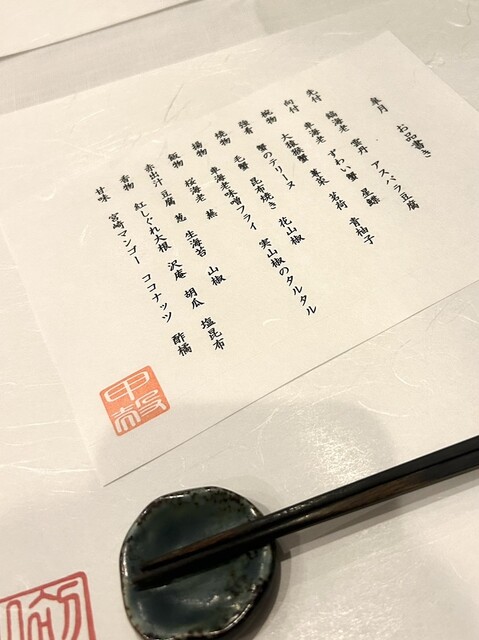 皐月　お品書き
先付　縞海老　雲丹　アスパラ豆腐
向付　車海老　ずわい蟹　星鰈
椀物　大猿猴蟹　蓴菜　茗荷　青柚子
強肴　蟹のテリーヌ
焼物　毛蟹　昆布焼き　花山椒
揚物　車海老味噌フライ　実山椒のタルタル
飯物　桜海老　蕪
赤出汁　豆腐　葱　生海苔　山椒
香物　紅しぐれ大根　沢庵　胡瓜　塩昆布
甘味　宮崎マンゴー　ココナッツ　酢橘
甲殻